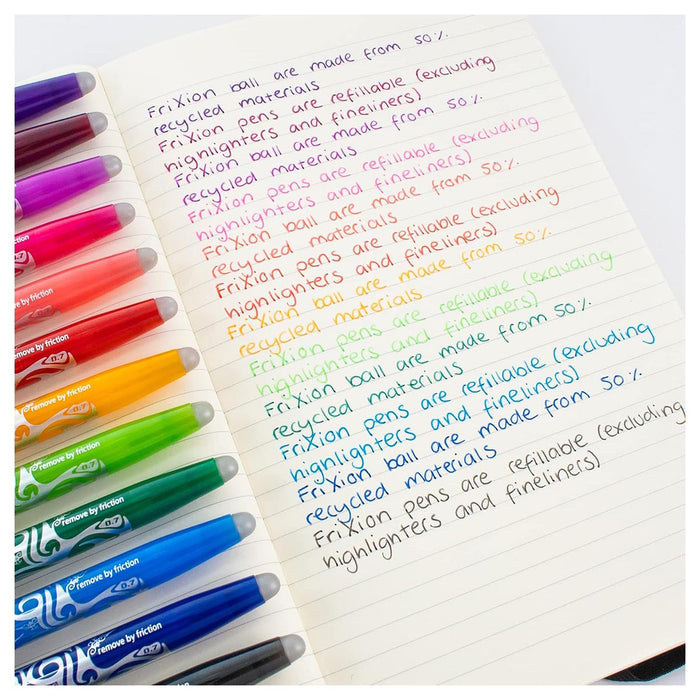 FriXion ball are made from 50%
recycled materials
FriXion pens are refillable (excluding
highlighters and fineliners)
FriXion ball are made from 50%
recycled materials
FriXion pens are refillable (excluding
highlighters and fineliners)
FriXion ball are made from 50%
recycled materials
FriXion pens are refillable (excluding
highlighters and fineliners)
FriXion ball are made from 50%
recycled materials
FriXion pens are refillable (excluding
highlighters and fineliners)
FriXion ball are made from 50%
recycled materials
FriXion pens are refillable (excluding
highlighters and fineliners)
FriXion ball are made from 50%
recycled materials
FriXion pens are refillable (excluding
highlighters and fineliners)
friction
by friction
remove by friction
0.7
remove by friction
0.7
remove by friction
0.7
remove by friction
0.7
remove by friction
0.7
remove by friction